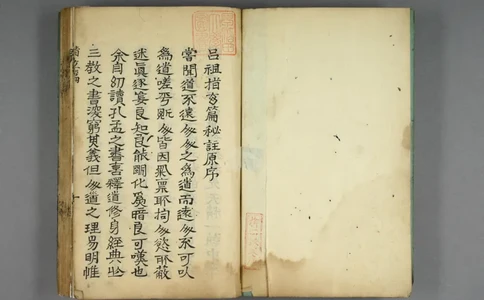 呂祖指玄篇秘註原序
嘗聞道不遠人人之為道而遠人不可以
為道嗟乎眂人皆因氣稟所拘人慾所蔽
迷真逐妄良知良能罔化為暗良可嘆也
余自幼讀孔孟之書喜釋道修身經典將
三教之書深窮其義但人道之理易明惟